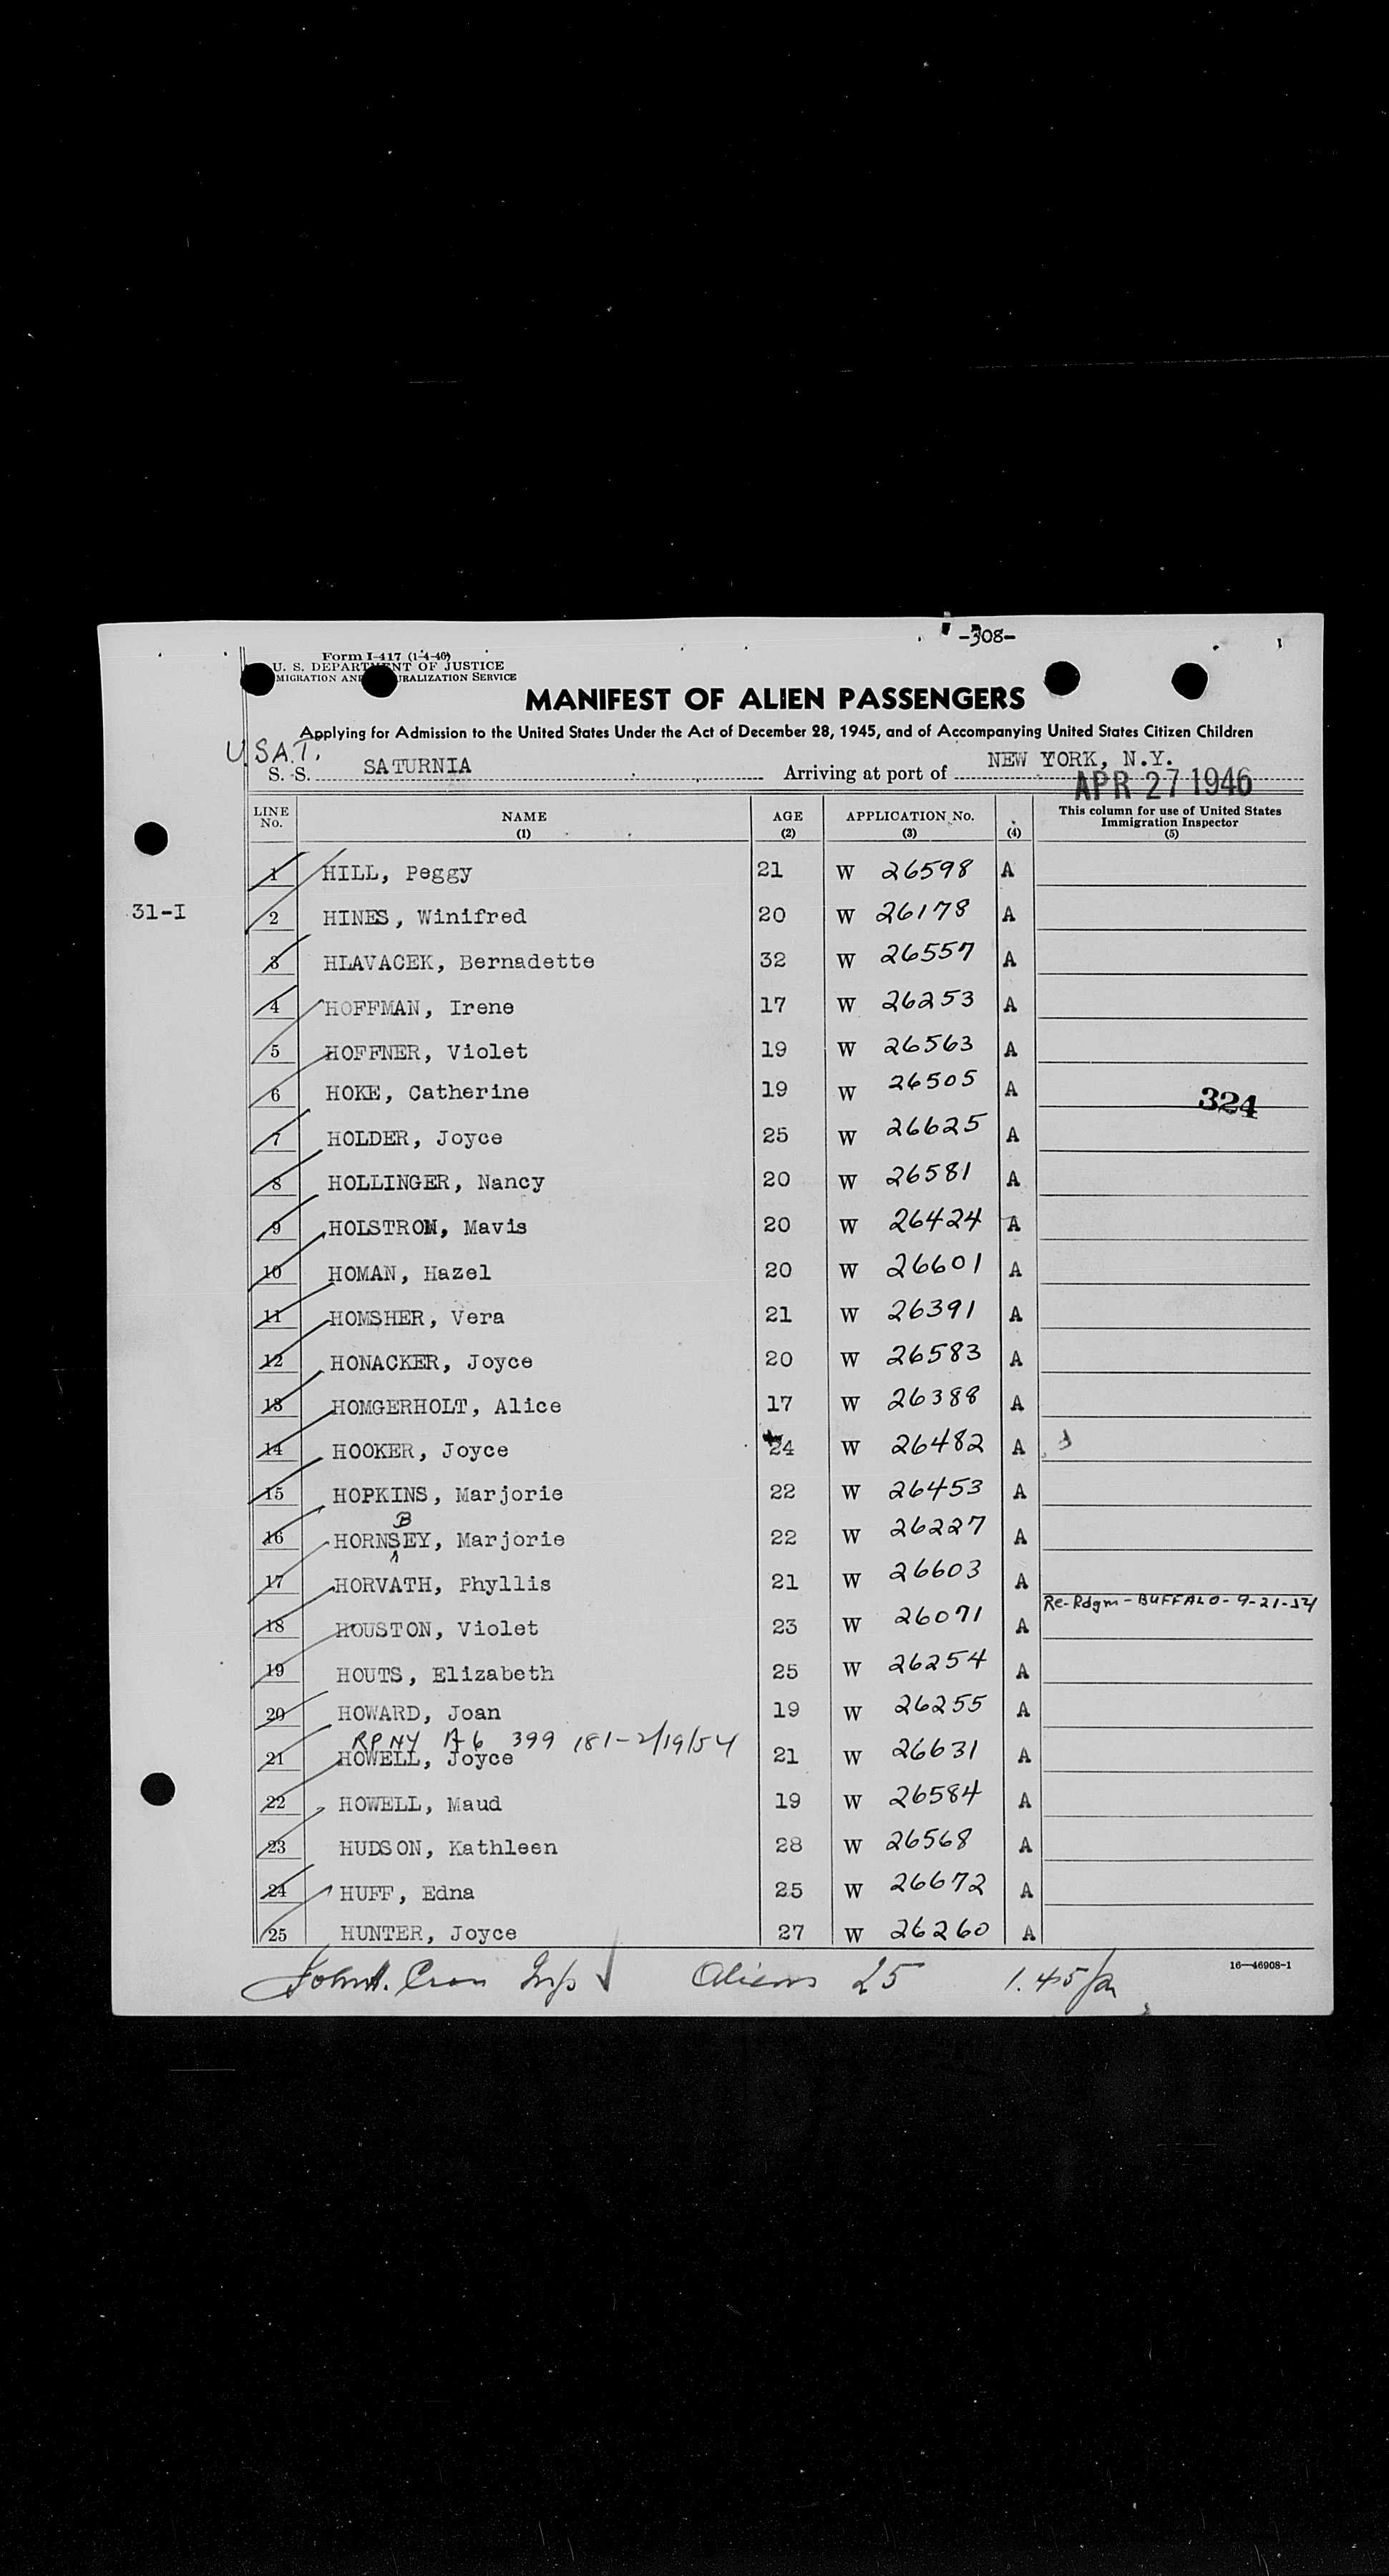 -308-
Form I-417 (1-4-46)
U. S. DEPARTMENT OF JUSTICE
MIGRATION AND NATURALIZATION SERVICE
MANIFEST OF ALIEN PASSENGERS
Applying for Admission to the United States Under the Act of December 28, 1945, and of Accompanying United States Citizen Children
U.S.A.T.
S. S. SATURNIA Arriving at port of NEW YORK, N.Y.
APR 27 1946
LINE No. NAME (1) AGE (2) APPLICATION No. (3) (4) This column for use of United States Immigration Inspector (5)
1 HILL, Peggy 21 W 26598 A
31-I
2 HINES, Winifred 20 W 26178 A
3 HLAVACEK, Bernadette 32 W 26557 A
4 HOFFMAN, Irene 17 W 26253 A
5 HOFFNER, Violet 19 W 26563 A
6 HOKE, Catherine 19 W 26505 A
324
7 HOLDER, Joyce 25 W 26625 A
8 HOLLINGER, Nancy 20 W 26581 A
9 HOLSTROM, Mavis 20 W 26424 A
10 HOMAN, Hazel 20 W 26601 A
11 HOMSHER, Vera 21 W 26391 A
12 HONACKER, Joyce 20 W 26583 A
13 HOMGERHOLT, Alice 17 W 26388 A
14 HOOKER, Joyce 24 W 26482 A
15 HOPKINS, Marjorie 22 W 26453 A
B
16 HORNSEY, Marjorie 22 W 26227 A
17 HORVATH, Phyllis 21 W 26603 A
Re-Rdgm-BUFFALO-9-21-54
18 HOUSTON, Violet 23 W 26071 A
19 HOUTS, Elizabeth 25 W 26254 A
20 HOWARD, Joan 19 W 26255 A
RP NY A6 399 181-2/19/54
21 HOWELL, Joyce 21 W 26631 A
22 HOWELL, Maud 19 W 26584 A
23 HUDSON, Kathleen 28 W 26568 A
24 HUFF, Edna 25 W 26672 A
25 HUNTER, Joyce 27 W 26260 A
John H. Cron Insp Aliens 25 1.45 pm
16—46908-1